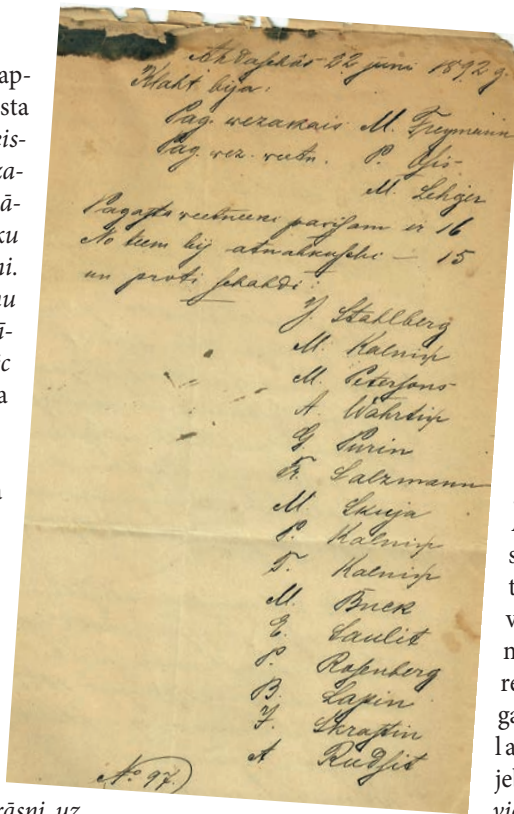 ap-
sta
eis-
za-
ā-
ku
ni.
nu
ī-
ic
a
Ahdaschôs 22 juni 1892 g.
Klaht bija:
Pag. wezakais M. Freymann
Pag. wez. weetn. P. Ohs
M. Lehger
Pagasta weetneeki pawisam ir 16
No teem bij atnahkuschi – 15
un proti schahdi:
J. Stahlberg
M. Kalniņ
M. Petersons
A. Wahrtiņ
G. Purin
Fr. Salzmann
M. Skuja
P. Kalniņ
T. Kalniņ
M. Buck
E. Saulit
P. Rosenberg
B. Lapin
J. Skrastin
A Rudsit
No 97.
rāsni uz
s
t
v
n
re
ga
la
jeb
vie